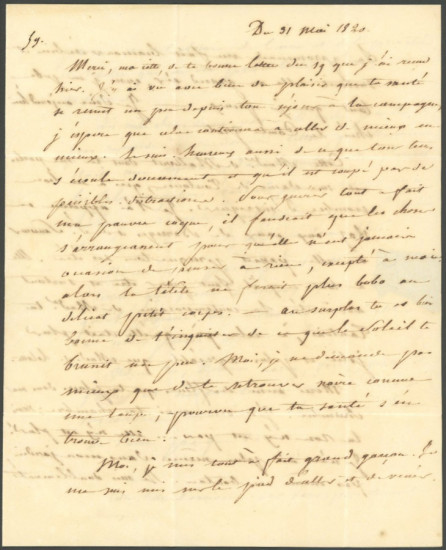 59.
Du 31 Mai 18
Merci, ma de ta bonne lettre du 29 que j'ai reçue
hier. J'y ai vu avec bien du plaisir que ta santé
se remet un peu depuis ton séjour à la campagne,
j'espère que cela continuera à aller de mieux en
mieux. Je suis heureux aussi de ce que ton tems
s'écoule doucement et qu'il est coupé par de
paisibles distractions. tout à fait
ma pauvre coque, il faudrait que les choses
s'arrangeassent pour qu'elle n'eut jamais
occasion de penser à rien, excepté à moi,
alors la tétête ne ferait plus bobo au
délicat petit corps. — au surplus tu es bien
bonne de t'inquiéter de ce que le Soleil te
brunit un peu. Moi, je ne demande pas
mieux que de te retrouver noire comme
une taupe, pourvu que ta santé s'en
trouve bien.
Moi, je suis tout à fait grand garçon. Je
me suis mis sur le pied d'aller et de venir